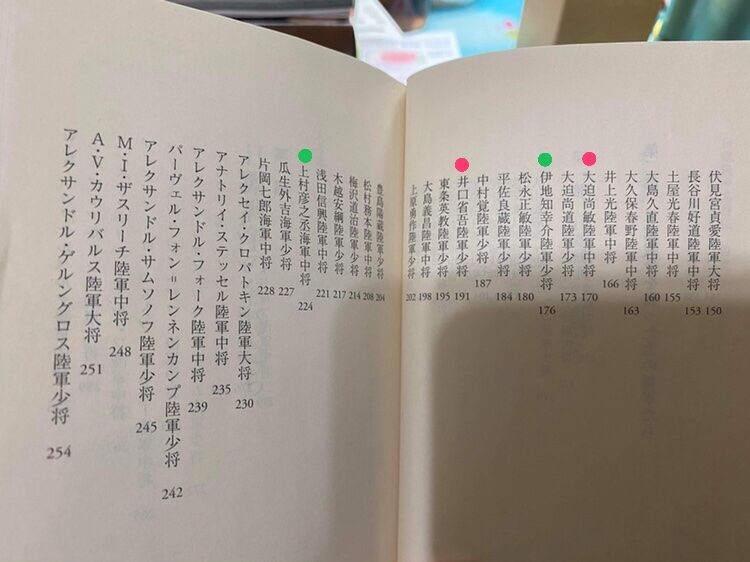 伏見宮貞愛陸軍大将 150
長谷川好道陸軍中将 153
土屋光春陸軍中将 155
大島久直陸軍中将 160
大久保春野陸軍中将 163
井上光陸軍中将 166
大迫尚敏陸軍中将 170
大迫尚道陸軍少将 173
伊地知幸介陸軍少将 176
松永正敏陸軍少将 180
平佐良蔵陸軍少将 184
中村覚陸軍少将 187
井口省吾陸軍少将 191
東条英教陸軍少将 195
大島義昌陸軍中将 198
上原勇作陸軍少将 202
豊島陽蔵陸軍少将 204
松村務本陸軍中将 208
梅沢道治陸軍少将 214
木越安綱陸軍少将 217
浅田信興陸軍少将 221
上村彦之丞海軍中将 224
瓜生外吉海軍少将 227
片岡七郎海軍中将 228
アレクセイ・クロパトキン陸軍大将 230
アナトリイ・ステッセル陸軍中将 235
アレクサンドル・フォーク陸軍中将 239
パーヴェル・フォン=レンネンカンプ陸軍少将 242
アレクサンドル・サムソノフ陸軍少将 245
M・I・ザスリーチ陸軍中将 248
A・V・カウリバルス陸軍大将 251
アレクサンドル・ゲルングロス陸軍少将 254